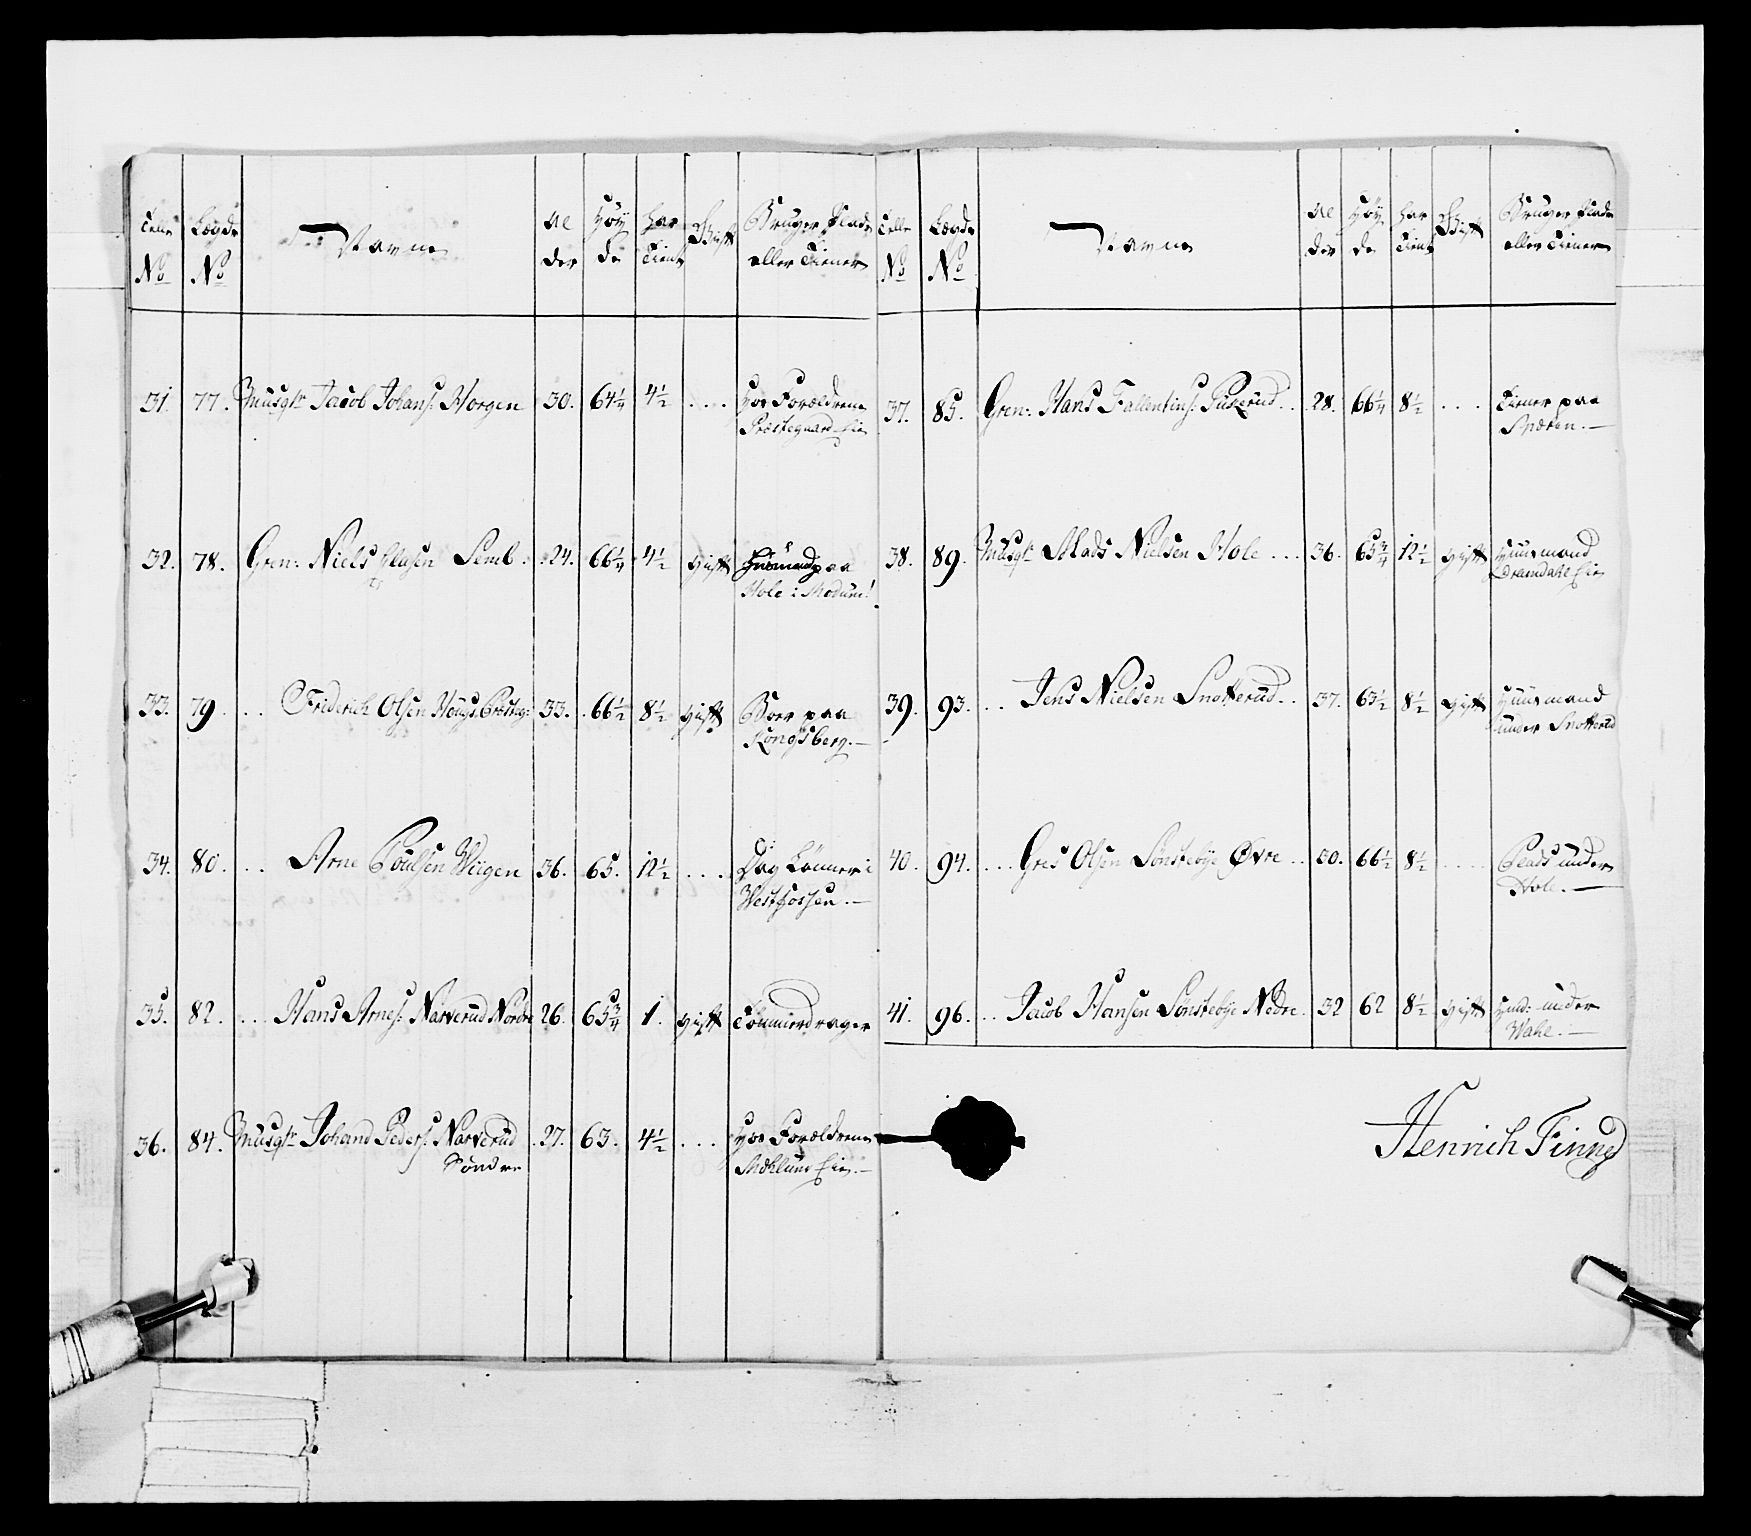 Telle No | Legds No | Navne | Alder | Høyde | har Tient | Gift | Bruger Plads eller Tiener
31. | 77. | Musqtr Jacob Johans: Horgen | 30. | 64¼ | 4½ | .... | hos Forældrene
Præstegaard Eie
32. | 78. | Gren: Niels Clasen Semb | 24. | 66¼ | 4½ | gift | Huusmand paa
Hole i Modum!
33. | 79. | .. Friderich Olsen Houg | 33. | 66½ | 8½ | gift | Boer paa
Kongsberg.
34. | 80. | .. Arne Poulsen Wiigen | 36. | 65. | 12½ | .... | Dag Lønner i
Westfossen.
35. | 82. | ... Hans Arnes: Narverud Nordre | 26. | 65¾ | 1. | gift | Tømmerdrager
36. | 84. | Musqtr Johand Peders: Narverud | 27. | 63. | 4½ | .... | hos Forældrene
Søndre
Eie.
Telle No | Legds No | Navne | Alder | Høyde | har Tient | Gift | Bruger Plads eller Tiener
37. | 85. | Gren: Hans Fallentins: | 28. | 66¼ | 8½ | .... | Tiener paa
38. | 89. | Musqtr Mads Nielsen Hole ... | 36. | 65¾ | 12½ | gift | Huusmand
Eie
39. | 93. | .. Jens Nielsen Snotterud.. | 37. | 63½ | 8½ | gift | Huusmand
under Snotterud
40. | 94. | ... Gres Olsen Sønsteby Øvre .. | 30. | 66½ | 8½ | .... | Plads under
Hole.
41. | 96. | .. Jacob Hansen Sønsteby Nedre. | 32 | 62 | 8½ | gift | Hmd: under
Wahl.
Henrich Finne